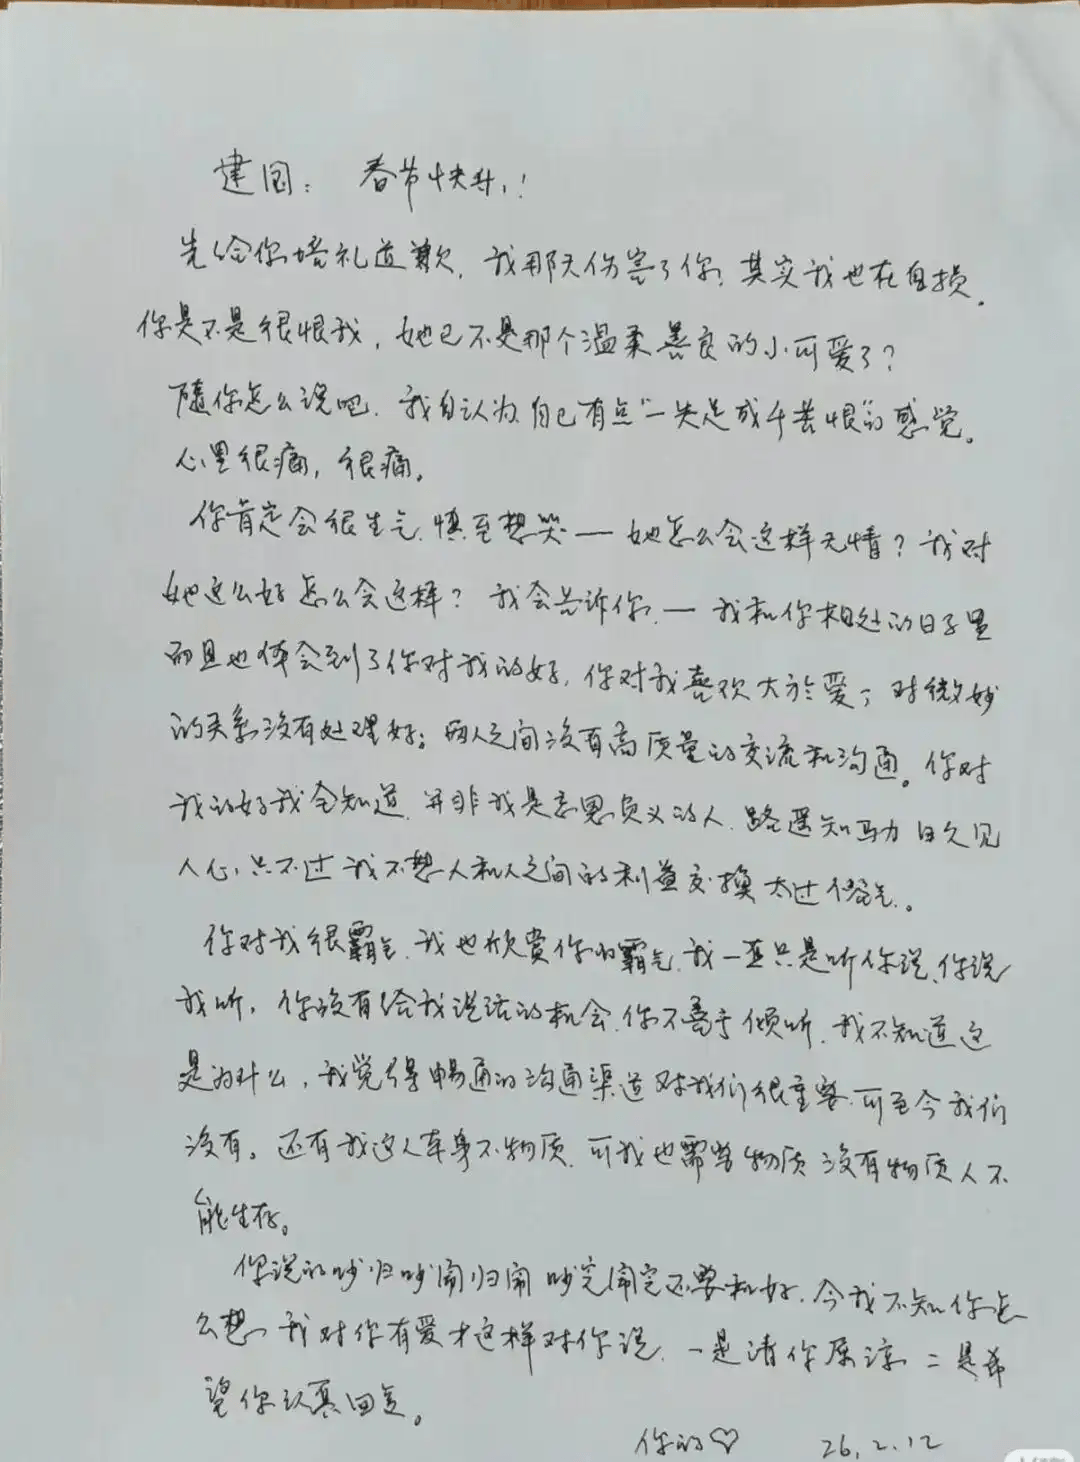 建国： 春节快乐！
先给你培礼道歉，我那天伤害了你，其实我也在自损。
你是不是很恨我，她已不是那个温柔善良的小可爱了？
随你怎么说吧，我自认为自己有点“一失足成千苦恨”的感觉。
心里很痛，很痛。
你肯定会很生气，慎至想哭——她怎么会这样无情？我对
她这么好怎么会这样？我会告诉你，——我和你相处的日子里
而且也体会到了你对我的好，你对我喜欢大於爱，对微妙
的关系没有处理好；两人之间没有高质量的交流和沟通。你对
我的好我全知道，并非我是忘恩负义的人，路遥知马力日久见
人心，只不过我不想人和人之间的利益交换太过俗气。
你对我很霸气，我也欣赏你的霸气，我一直只是听你说，你说
我听，你没有给我说话的机会，你不善于倾听，我不知道这
是为什么，我觉得畅通的沟通渠道对我们很重要，可至今我们
没有。还有我这人本身不物质，可我也需要物质没有物质人不
能生存。
你说的吵归吵闹归闹吵完闹完还要和好，今我不知你怎
么想，我对你有爱才这样对你说，一是请你原谅二是希
望你认真回复。
你的♡ 26.2.12